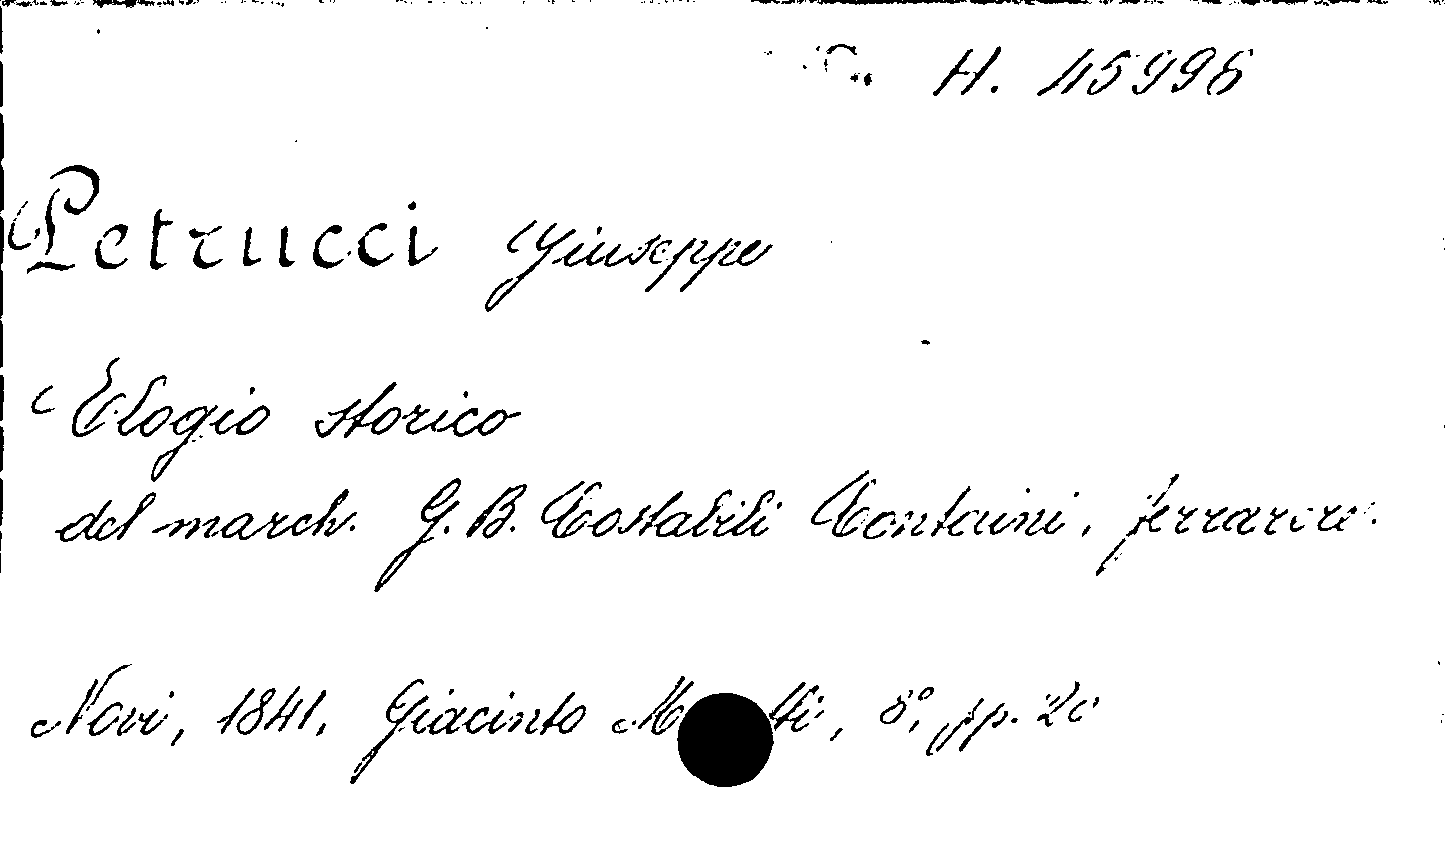 H. 45996
Petrucci Giuseppe
Elogio storico
del march. G. B. Costabili Containi, ferrarese.
Novi, 1841, Giacinto , 8°, pp. 20